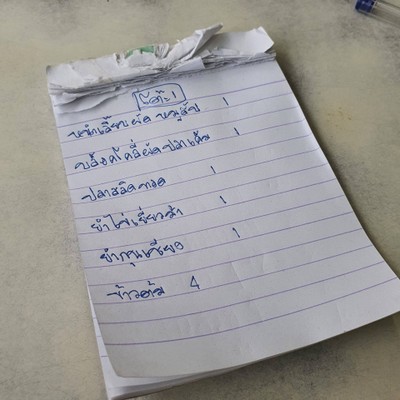 โต๊ะ 1
หนำเลี๊ยบผัดหมูสับ 1
บล็อคโคลี่ผัดปลาเค็ม 1
ปลาสลิดทอด 1
ยำไข่เยี่ยวม้า 1
ยำกุนเชียง 1
ข้าวต้ม 4